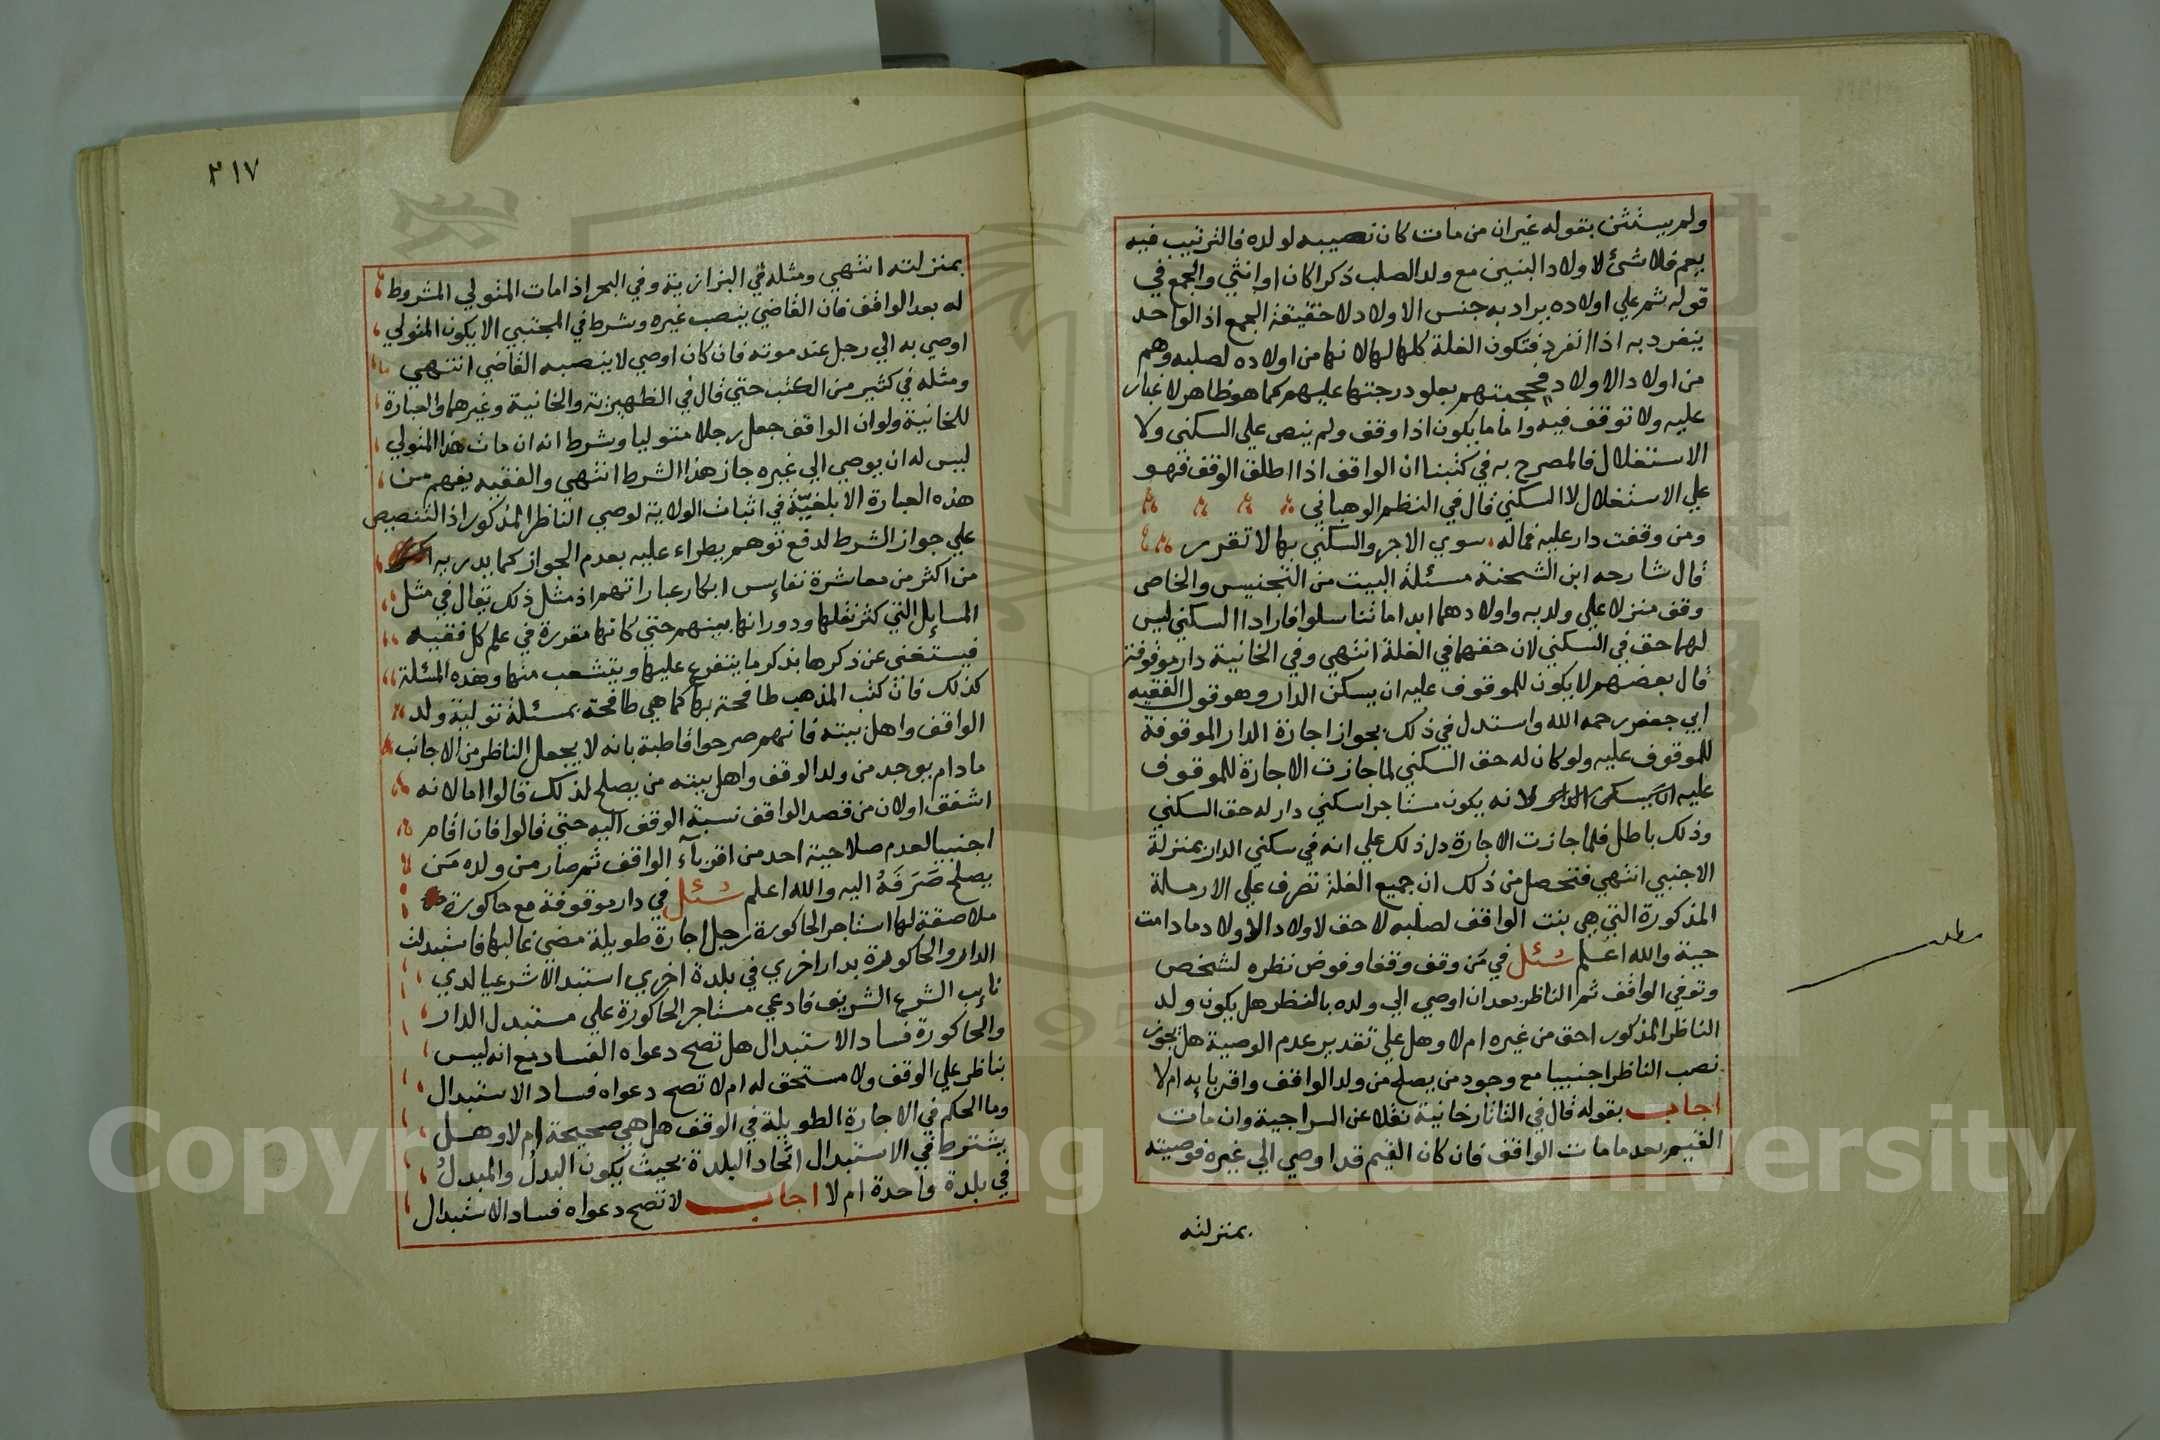 ولم يستثن بقوله غير ان من مات كان نصيبه لولده فالترتيب فيه
يعم فلا شئ لاولاد البنين مع ولد الصلب ذكرا كان او انثي والجمع في
قوله ثم علي اولاده يراد به جنس الاولاد لا حقيقة الجمع اذ الواحد
ينفرد به اذا انفرد فتكون الغلة كلها لها لانها من اولاده لصلبه وهم
من اولاد الاولاد فحجبتهم بعلو درجتها عليهم كما هو ظاهر لا غبار
عليه ولا توقف فيه واما ما يكون اذا وقف ولم ينص علي السكني ولا
الاستغلال فالمصرح به في كتبنا ان الواقف اذا اطلق الوقف فهو
علي الاستغلال لا السكني قال في النظم الوهباني
ومن وقفت دار عليه فماله سوي الاجر والسكني بها لا تقرر
قال شارحه ابن الشحنة مسئلة البيت من التجنيس والخاص
وقف منزلا علي ولديه واولادهما ابدا ما تناسلوا فارادا السكني ليس
لهما حق في السكني لان حقهما في الغلة انتهي وفي الخانية دار موقوفة
قال بعضهم لا يكون للموقوف عليه ان يسكن الدار وهو قول الفقيه
ابي جعفر رحمه الله واستدل في ذلك بجواز اجارة الدار الموقوفة
للموقوف عليه ولو كان له حق السكني لما جازت الاجارة للموقوف
عليه لانه يكون مستاجرا سكني دار له حق السكني
وذلك باطل فلما جازت الاجارة دل ذلك علي انه في سكني الدار بمنزلة
الاجنبي انتهي فتحصل من ذلك ان جميع الغلة تصرف علي الارملة
المذكورة التي هي بنت الواقف لصلبه لا حق لاولاد الاولاد ما دامت
حية والله اعلم سئل في من وقف وقفا وفوض نظره لشخص
وتوفي الواقف ثم الناظر بعد ان اوصي الي ولده بالنظر هل يكون ولد
الناظر المذكور احق من غيره ام لا وهل علي تقدير عدم الوصية هل يجوز
نصب الناظر اجنبيا مع وجود من يصلح من ولد الواقف واقربايه ام لا
اجاب بقوله قال في التاتارخانية نقلا عن السراجية وان مات
القيم بعد ما مات الواقف فان كان القيم قد اوصي الي غيره فوصيته
بمنزلته
مطلب
٢١٧
بمنزلته انتهي ومثله في البزازية وفي البحر اذا مات المتولي المشروط
له بعد الواقف فان القاضي ينصب غيره وشرط في المجتبي الا يكون المتولي
اوصي به الي رجل عند موته فان كان اوصي لا ينصبه القاضي انتهي
ومثله في كثير من الكتب حتي قال في الظهيرية والخانية وغيرهما والعبارة
للخانية ولو ان الواقف جعل رجلا متوليا وشرط انه ان مات هذا المتولي
ليس له ان يوصي الي غيره جاز هذا الشرط انتهي والفقيه يفهم من
هذه العبارة الابلغيّة في اثبات الولاية لوصي الناظر المذكور اذ التنصيص
علي جواز الشرط لدفع توهم يطراء عليه بعدم الجواز كما يدريه
من اكثر من معاشرة نفايس ابكار عباراتهم اذ مثل ذلك يقال في مثل
المسايل التي كثر نقلها ودورانها بينهم حتي كانها مقررة في علم كل فقيه
فيستغني عن ذكرها بذكر ما يتفرع عليها ويتشعب منها وهذه المسئلة
كذلك فان كتب المذهب طافحة بها كما هي طافحة بمسئلة تولية ولد
الواقف واهل بيته فانهم صرحوا قاطبة بانه لا يجعل الناظر من الاجانب
ما دام يوجد من ولد الوقف واهل بيته من يصلح لذلك قالوا اما لانه
اشفق او لان من قصد الواقف نسبة الوقف اليه حتي قالوا فان اقام
اجنبيا لعدم صلاحية احد من اقربآء الواقف ثم صار من ولده مَن
يصلح صَرَفَهُ اليه والله اعلم سئل في دار موقوفة مع حاكورة
ملاصقة لها استاجر الحاكورة رجل اجارة طويلة مضي غالبها فاستبدلت
الدار والحاكورة بدار اخري في بلدة اخري استبدالا شرعيا لدي
نايب الشرع الشريف فادعي مستاجر الحاكورة علي مستبدل الدار
والحاكورة فساد الاستبدال هل تصح دعواه الفساد مع انه ليس
بناظر علي الوقف ولا مستحق له ام لا تصح دعواه فساد الاستبدال
وما الحكم في الاجارة الطويلة في الوقف هل هي صحيحة ام لا وهل
يشترط في الاستبدال اتحاد البلدة بحيث يكون البدل والمبدل
في بلدة واحدة ام لا اجاب لا تصح دعواه فساد الاستبدال
Copyright © King Saud University